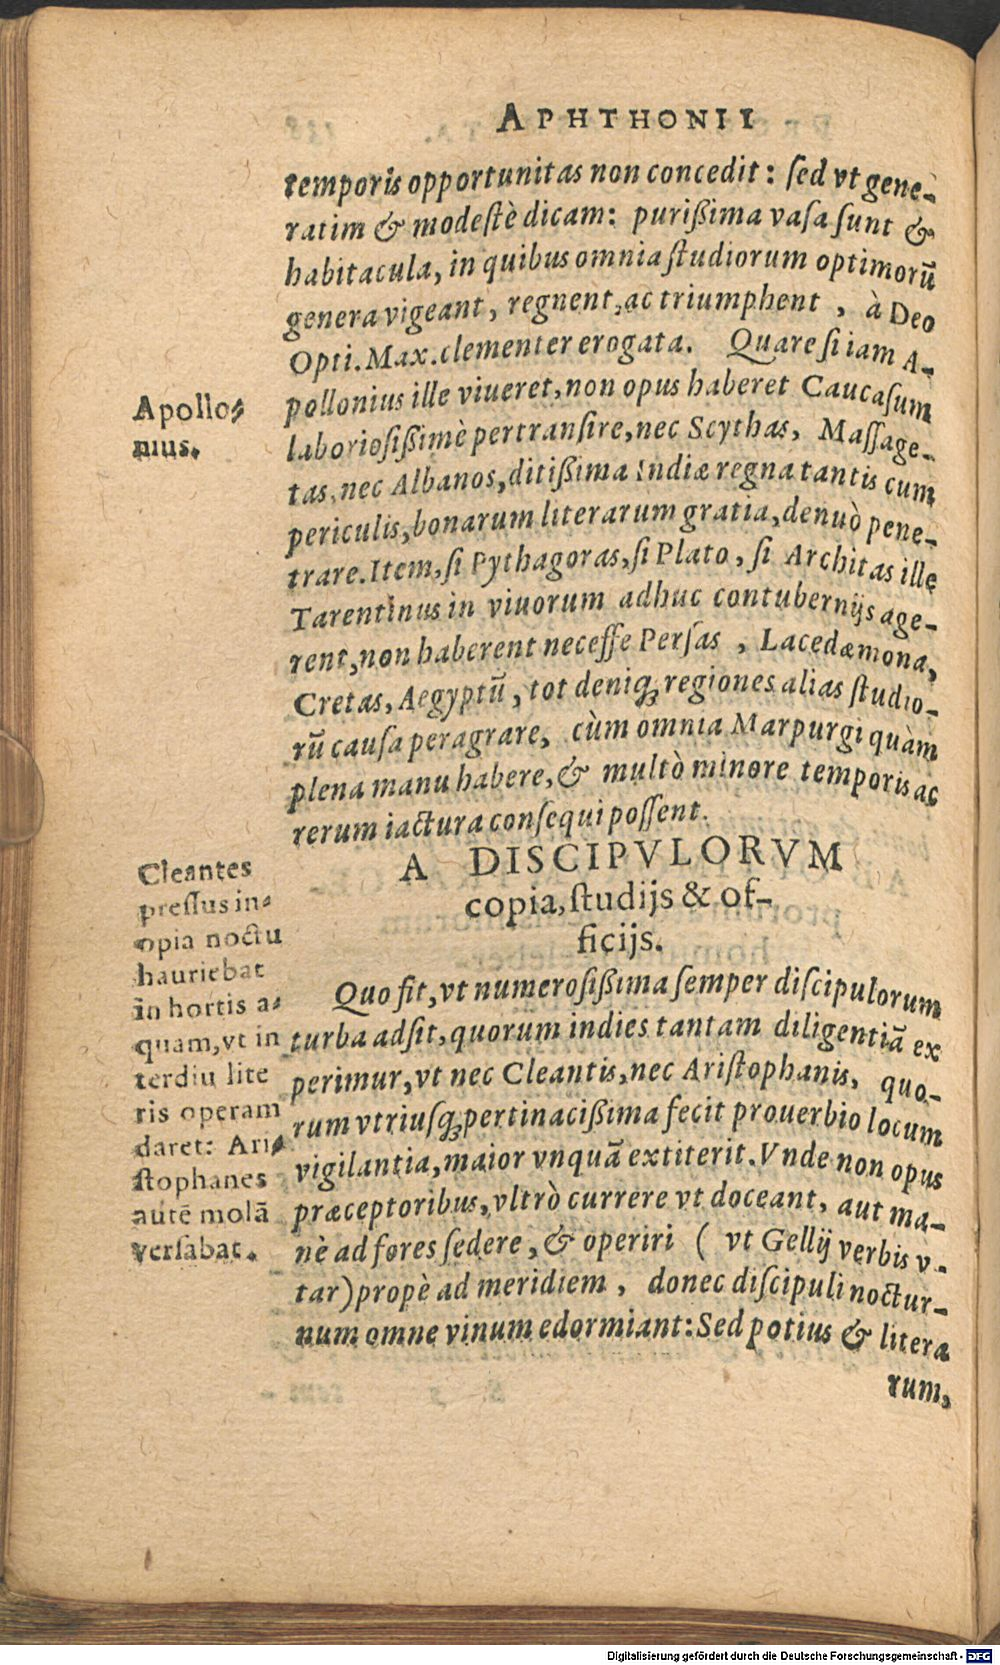 APHTHONII
temporis opportunitas non concedit: sed vt gene-
ratim & modestè dicam: purißima vasa sunt &
habitacula, in quibus omnia studiorum optimorũ
genera vigeant, regnent, ac triumphent , à Deo
Opti. Max. clementer erogata. Quare si iam A-
pollonius ille viueret, non opus haberet Caucasum
laboriosißimè pertransire, nec Scythas, Massage-
tas, nec Albanos, ditißima Indiæ regna tantis cum
periculis, bonarum literarum gratia, denuò pene-
trare. Item, si Pythagoras, si Plato, si Architas ille
Tarentinus in viuorum adhuc contubernijs age-
rent, non haberent necesse Persas , Lacedæmona,
Cretas, Aegyptũ, tot deniqꝫ regiones alias studio-
rũ causa peragrare, cùm omnia Marpurgi quàm
plena manu habere, & multò minore temporis ac
rerum iactura consequi possent.
Apollo-
nius.
A DISCIPVLORVM
copia, studijs & of-
ficijs.
Quo fit, vt numerosißima semper discipulorum
turba adsit, quorum indies tantam diligentiã ex
perimur, vt nec Cleantis, nec Aristophanis, quo-
rum vtriusqꝫ pertinacißima fecit prouerbio locum
vigilantia, maior vnquã extiterit. Vnde non opus
præceptoribus, vltrò currere vt doceant, aut ma-
nè ad fores sedere, & operiri ( vt Gellij verbis v-
tar) propè ad meridiem , donec discipuli noctur-
num omne vinum edormiant: Sed potius & litera
rum,
Cleantes
pressus in-
opia noctu
hauriebat
in hortis a-
quam, vt in
terdiu lite
ris operam
daret: Ari-
stophanes
autẽ molã
versabat.
Digitalisierung gefördert durch die Deutsche Forschungsgemeinschaft - DFG